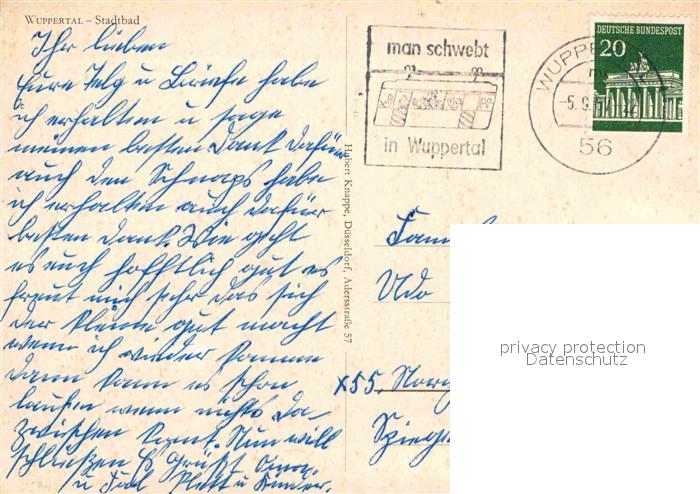 WUPPERTAL – Stadtbad
Ihr lieben
Eure Telg u Briefe habe
ich erhalten u sage
meinen besten Dank dafür
auch den Schnaps habe
ich erhalten auch dafür
besten Dank. Wie geht
es euch hofftlich gut es
freut mich sehr das sich
der kleine gut macht
wenn ich wieder komme
dann kann es schon
laufen wenn nichts da-
zwischen kommt. Nun will
schließen Es Grüßt
u Kinder.
Hubert Knappe, Düsseldorf, Adersstraße 57
man schwebt
in Wuppertal
WUPPE
-5.9.
56
DEUTSCHE BUNDESPOST
20
Fam
Udo
x55
privacy protection
Datenschutz